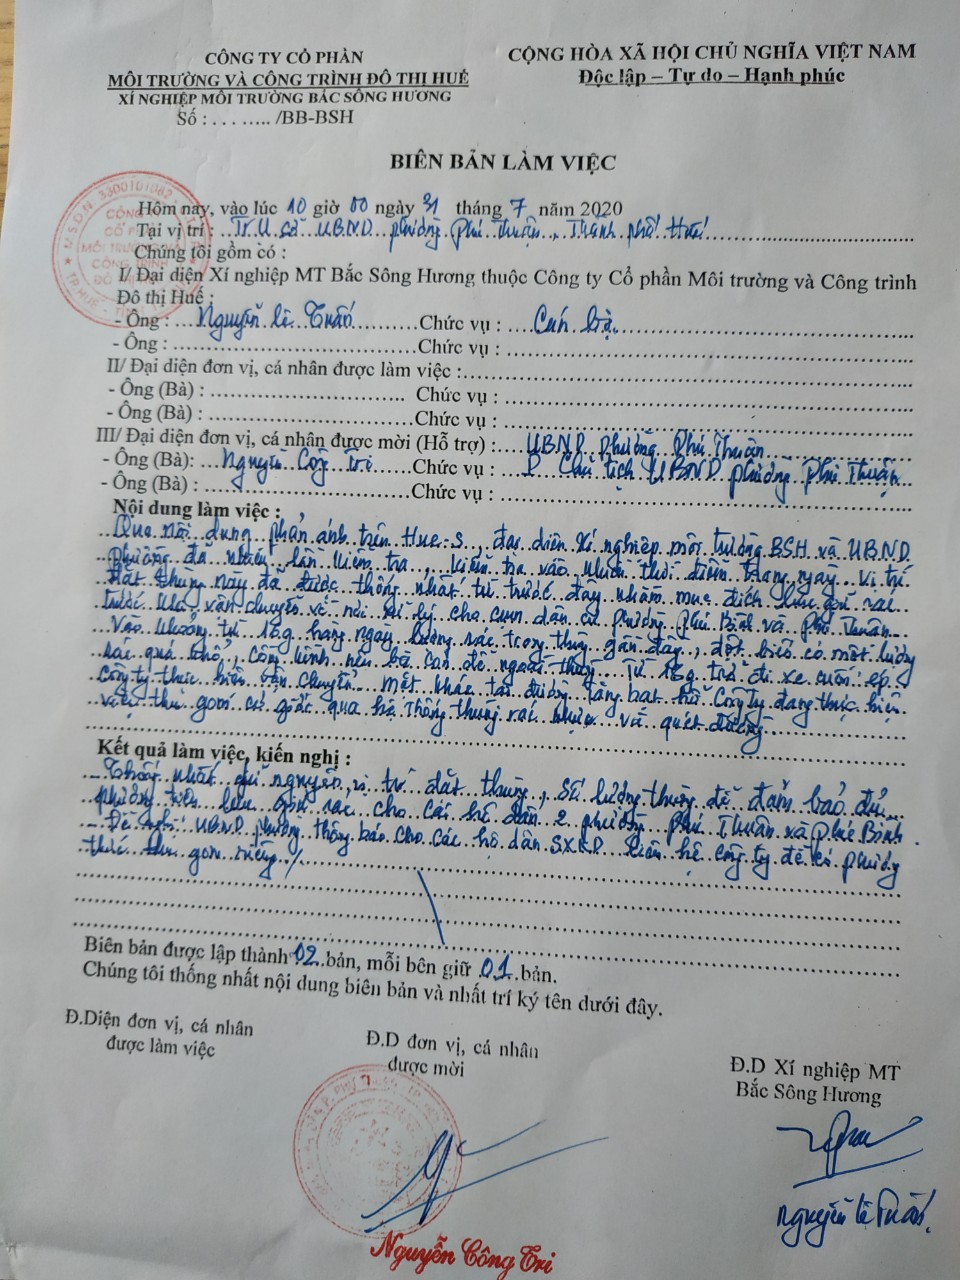 CÔNG TY CỔ PHẦN
MÔI TRƯỜNG VÀ CÔNG TRÌNH ĐÔ THỊ HUẾ
XÍ NGHIỆP MÔI TRƯỜNG BẮC SÔNG HƯƠNG
Số : . . . . ..... /BB-BSH
CỘNG HÒA XÃ HỘI CHỦ NGHĨA VIỆT NAM
Độc lập – Tự do – Hạnh phúc
BIÊN BẢN LÀM VIỆC
Hôm nay, vào lúc 10 giờ 00 ngày 31 tháng 7 năm 2020
Tại vị trí : Trụ sở UBND phường Phú Thuận, Thành phố Huế
Chúng tôi gồm có :
I/ Đại diện Xí nghiệp MT Bắc Sông Hương thuộc Công ty Cổ phần Môi trường và Công trình
Đô thị Huế :
- Ông : Nguyễn Lê Tuấn Chức vụ : Cán bộ
- Ông : Chức vụ :
II/ Đại diện đơn vị, cá nhân được làm việc :
- Ông (Bà) : Chức vụ :
- Ông (Bà) : Chức vụ :
III/ Đại diện đơn vị, cá nhân được mời (Hỗ trợ) : UBND phường Phú Thuận
- Ông (Bà): Nguyễn Công Tri Chức vụ : P. Chủ tịch UBND phường Phú Thuận
- Ông (Bà) : Chức vụ :
Nội dung làm việc :
Qua nội dung phản ánh trên Hue-S, đại diện Xí nghiệp môi trường BSH và UBND
phường đã nhiều lần kiểm tra, kiểm tra vào nhiều thời điểm trong ngày. Vị trí
đặt thùng này đã được thống nhất từ trước đây nhằm mục đích lưu giữ rác
trước khi vận chuyển về nơi xử lý cho cụm dân cư phường Phú Bình và Phú Thuận.
Vào khoảng từ 16g hàng ngày lượng rác trong thùng gần đầy, đột biến có một lượng
rác quá khổ, cồng kềnh nên bà con để ngoài thùng. Từ 18g trở đi xe cuốn ép
Công ty thực hiện vận chuyển. Mặt khác tại đường Tăng Bạt Hổ Công ty đang thực hiện
việc thu gom cơ giới qua hệ thống thùng rác nhựa và quét đường
Kết quả làm việc, kiến nghị :
- Thống nhất giữ nguyên vị trí đặt thùng, số lượng thùng để đảm bảo đủ
phương tiện lưu giữ rác cho các hộ dân 2 phường Phú Thuận và Phú Bình
- Đề nghị UBND phường thông báo cho các hộ dân SXKD liên hệ công ty để có phương
thức thu gom riêng./.
Biên bản được lập thành 02 bản, mỗi bên giữ 01 bản.
Chúng tôi thống nhất nội dung biên bản và nhất trí ký tên dưới đây.
Đ.Diện đơn vị, cá nhân
được làm việc
Đ.D đơn vị, cá nhân
được mời
Đ.D Xí nghiệp MT
Bắc Sông Hương
Nguyễn Lê Tuấn
Nguyễn Công Tri
M.S.D.N 3300101082
CÔNG TY
CỔ PHẦN
MÔI TRƯỜNG VÀ
CÔNG TRÌNH
ĐÔ THỊ HUẾ